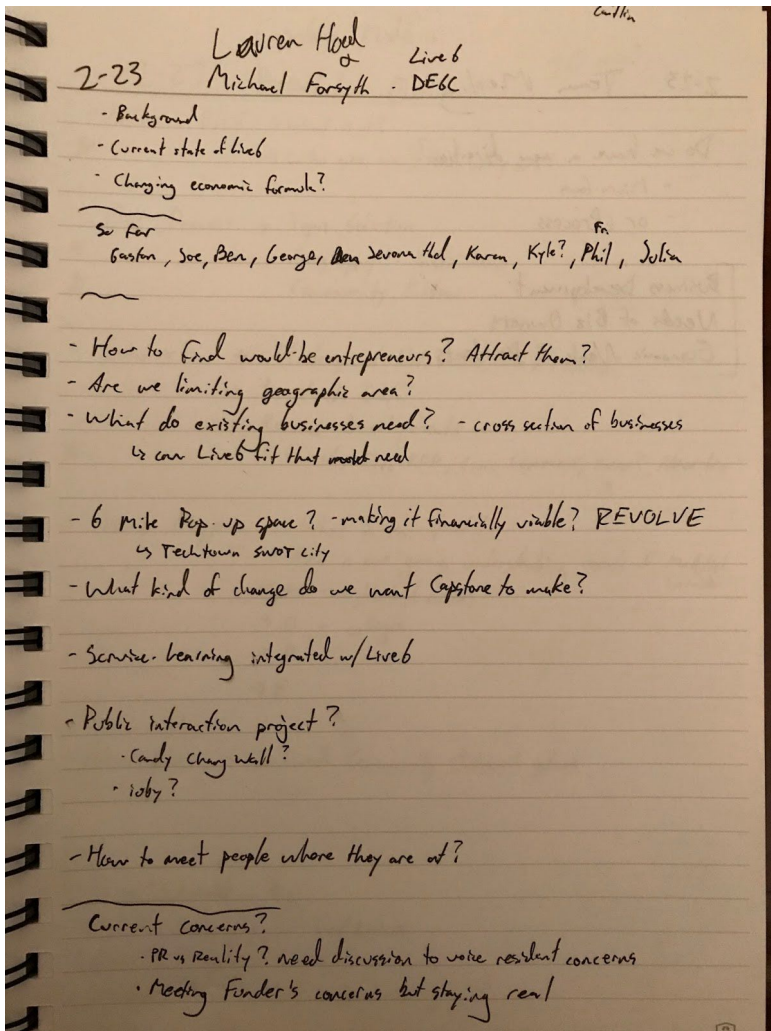 Caitlin
Lauren Hood
& Live6
2-23 Michael Forsyth - DEGC
- Background
- Current state of Live6
- Changing economic formula?
So Far
Fr.
Gaston, Joe, Ben, George, Jevona Hol, Karen, Kyle?, Phil, Julia
- How to find would-be entrepreneurs? Attract them?
- Are we limiting geographic area?
- What do existing businesses need? - cross section of businesses
↳ can Live6 fit that need
- 6 Mile Pop-up space? - making it financially viable? REVOLVE
↳ Techtown SWOT City
- What kind of change do we want Capstone to make?
- Service-Learning integrated w/ Live6
- Public interaction project?
· Candy Chang Wall?
· ioby?
- How to meet people where they are at?
Current Concerns?
· PR vs Reality? need discussion to voice resident concerns
· Meeting Funder's concerns but staying real